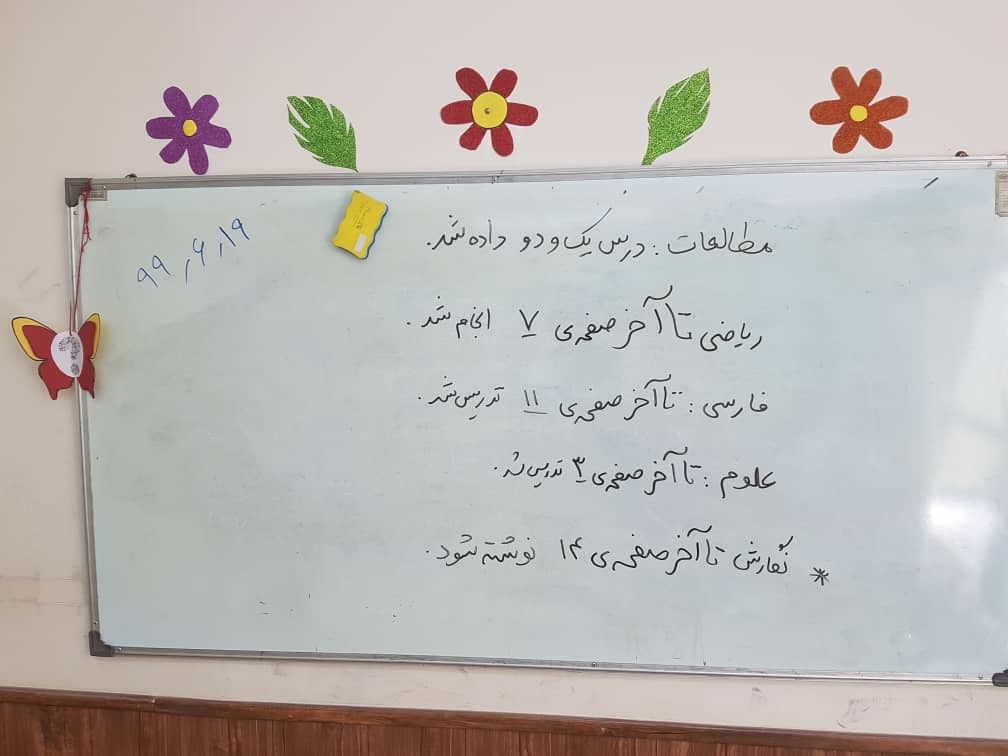 ۹۹٫۶٫۱۹
مطالعات : درس یک و دو داده شد.
ریاضی تا آخر صفحه ی ۷ انجام شد.
فارسی : تا آخر صفحه ی ۱۱ تدریس شد.
علوم : تا آخر صفحه ی ۳ تدریس شد.
* نگارش تا آخر صفحه ی ۱۴ نوشته شود.